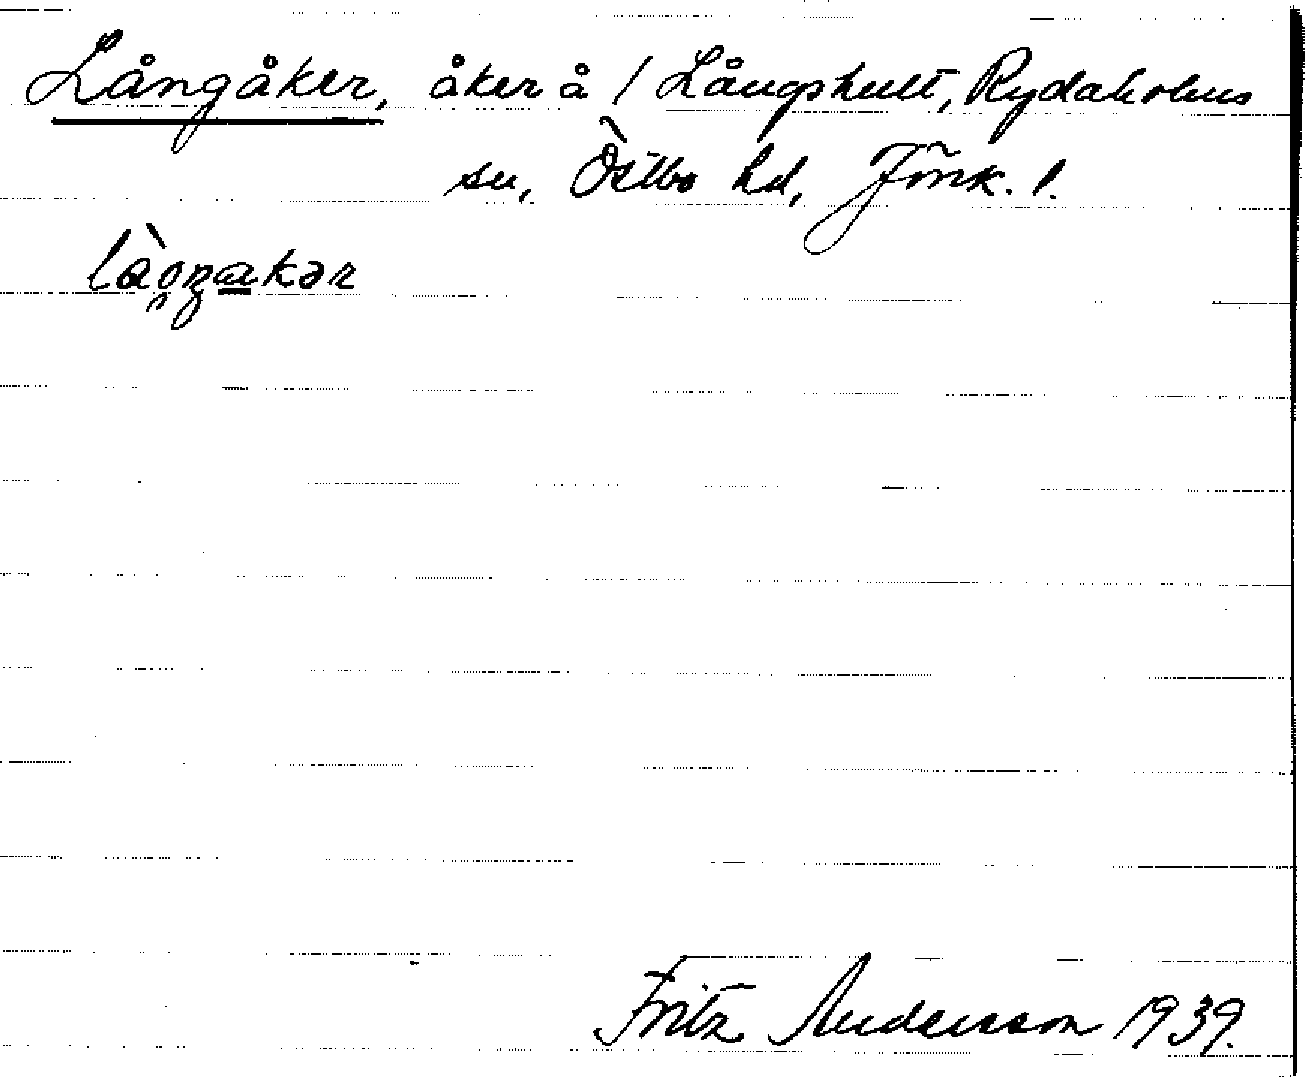 Långåker, åker å / Långshult, Rydaholms
sn, Östbo hd, Jönk. l.
Fritz Andersson 1939.